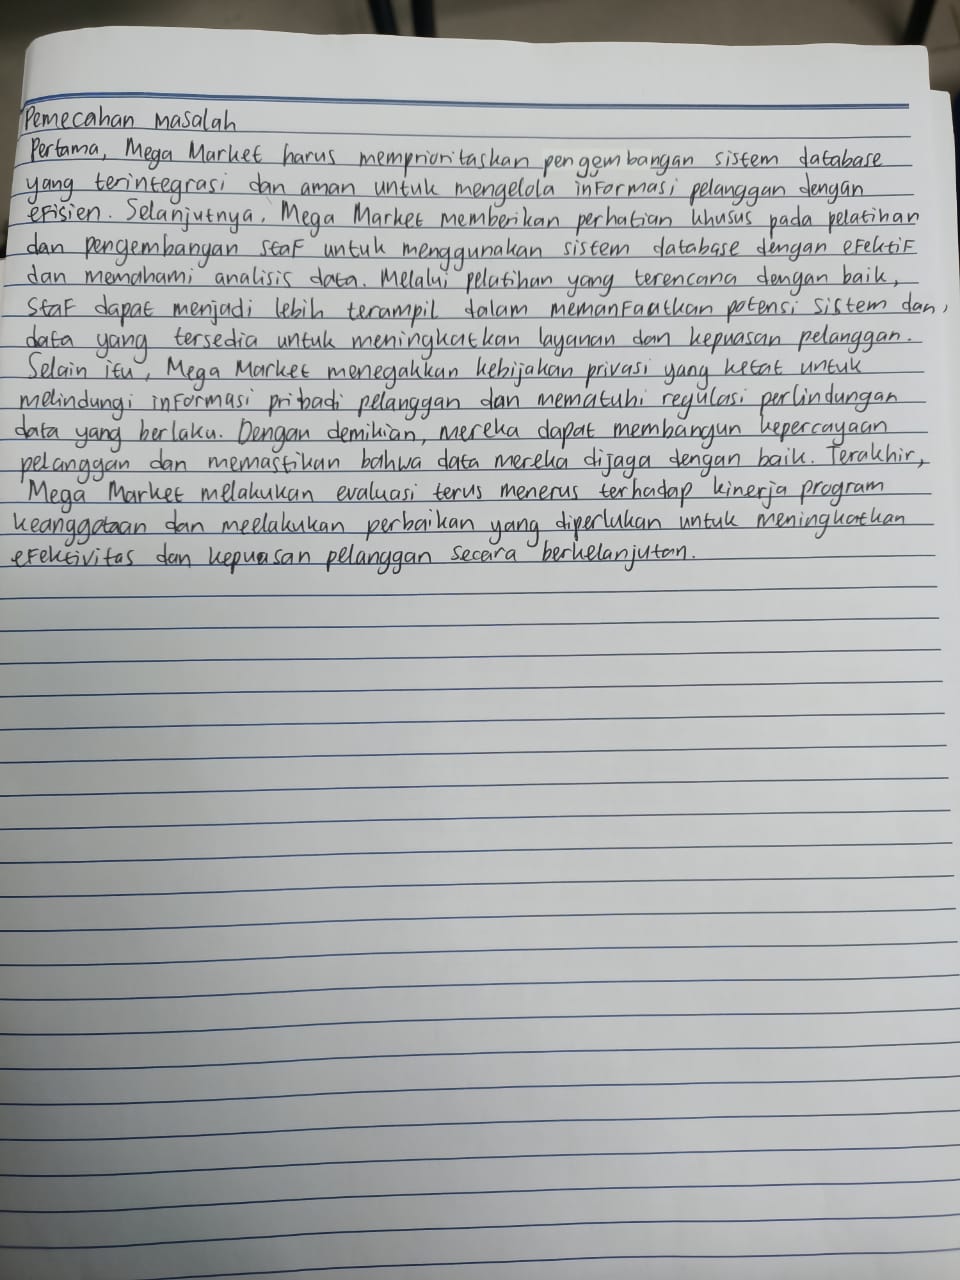 Pemecahan masalah
Pertama, Mega Market harus memprioritaskan pengembangan sistem database
yang terintegrasi dan aman untuk mengelola informasi pelanggan dengan
efisien. Selanjutnya, Mega Market memberikan perhatian khusus pada pelatihan
dan pengembangan staf untuk menggunakan sistem database dengan efektif
dan memahami analisis data. Melalui pelatihan yang terencana dengan baik,
staf dapat menjadi lebih terampil dalam memanfaatkan potensi sistem dan,
data yang tersedia untuk meningkatkan layanan dan kepuasan pelanggan.
Selain itu, Mega Market menegakkan kebijakan privasi yang ketat untuk
melindungi informasi pribadi pelanggan dan mematuhi regulasi perlindungan
data yang berlaku. Dengan demikian, mereka dapat membangun kepercayaan
pelanggan dan memastikan bahwa data mereka dijaga dengan baik. Terakhir,
Mega Market melakukan evaluasi terus menerus terhadap kinerja program
keanggotaan dan meelakukan perbaikan yang diperlukan untuk meningkatkan
efektivitas dan kepuasan pelanggan secara berkelanjutan.